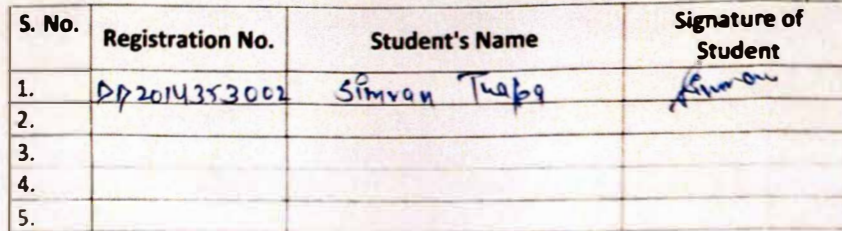 S. No. Registration No. Student's Name Signature of Student
1. DP2014353002 Simran Thapa Simran
2.
3.
4.
5.